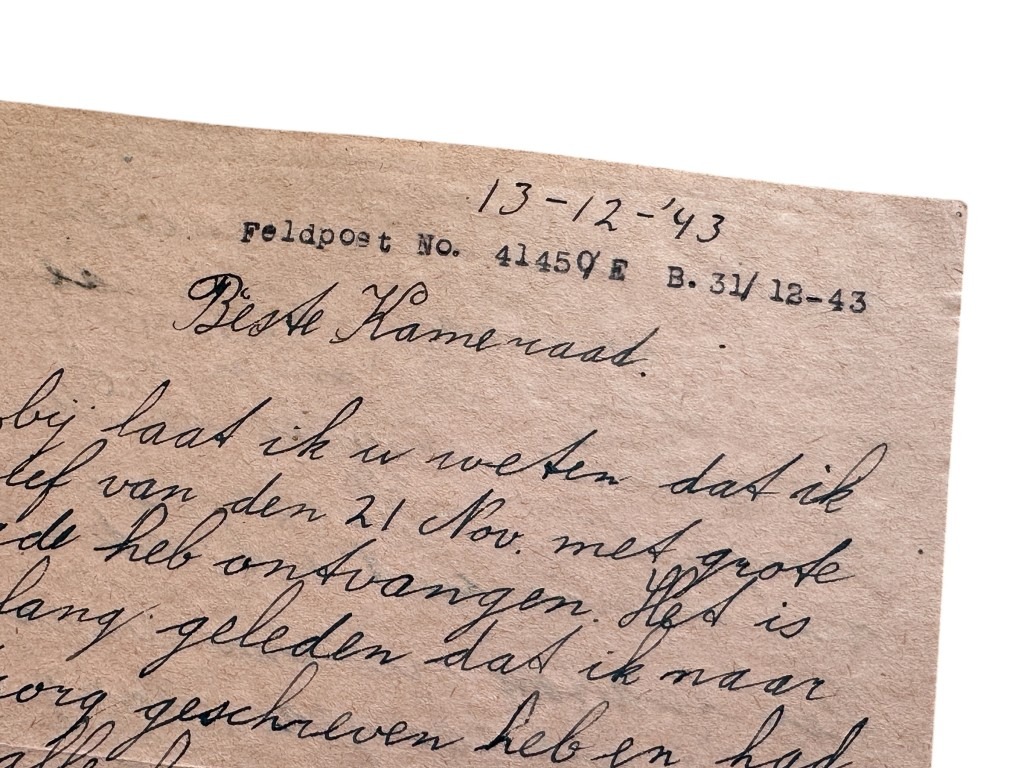 13-12-'43
Feldpost No. 41450/E B. 31/12-43
Beste Kameraad.
bij laat ik u weten dat ik
ief van den 21 Nov. met grote
de heb ontvangen. Het is
lang geleden dat ik naar
zorg geschreven heb en had